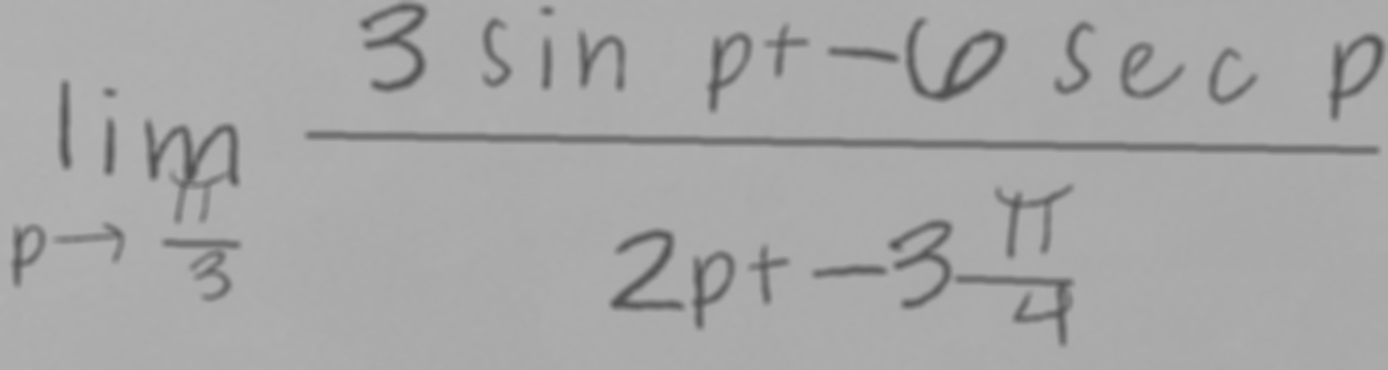 lim p→π/3 (3 sin p + −6 sec p)/(2p + −3 π/4)